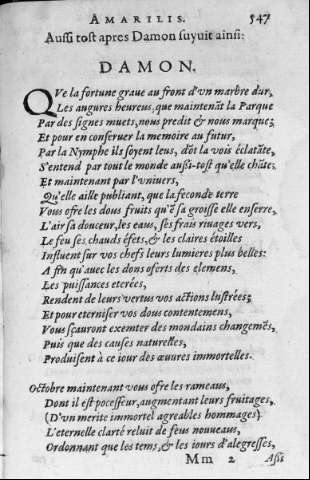 AMARILIS. 547
Aussi tost apres Damon suyuit ainsi:
DAMON.
QVe la fortune graue au front d'vn marbre dur,
Les augures heureus, que maintenāt la Parque
Par des signes muets, nous predit & nous marque;
Et pour en conseruer la memoire au futur,
Par la Nymphe ils soyent leus, dōt la vois éclatāte,
S'entend par tout le monde aussi-tost qu'elle chāte;
Et maintenant par l'vniuers,
Qu'elle aille publiant, que la feconde terre
Vous ofre les dous fruits qu'ē sa groisse elle enserre,
L'air sa douceur, les eaus, ses frais riuages vers,
Le feu ses chauds éfets, & les claires étoilles
Influent sur vos chefs leurs lumieres plus belles:
A fin qu'auec les dons oferts des elemens,
Les puissances etcrées,
Rendent de leurs vertus vos actions lustrées;
Et pour eterniser vos dous contentemens,
Vous sçauront exemter des mondains changemēs,
Puis que des causes naturelles,
Produisent à ce iour des œuures immortelles.
Octobre maintenant vous ofre les rameaus,
Dont il est pocesseur, augmentant leurs fruitages,
(D'vn merite immortel agreables hommages)
L'eternelle clarté reluit de feus nouueaus,
Ordonnant que les tems, & les iours d'alegresses,
Mm 2 Assi